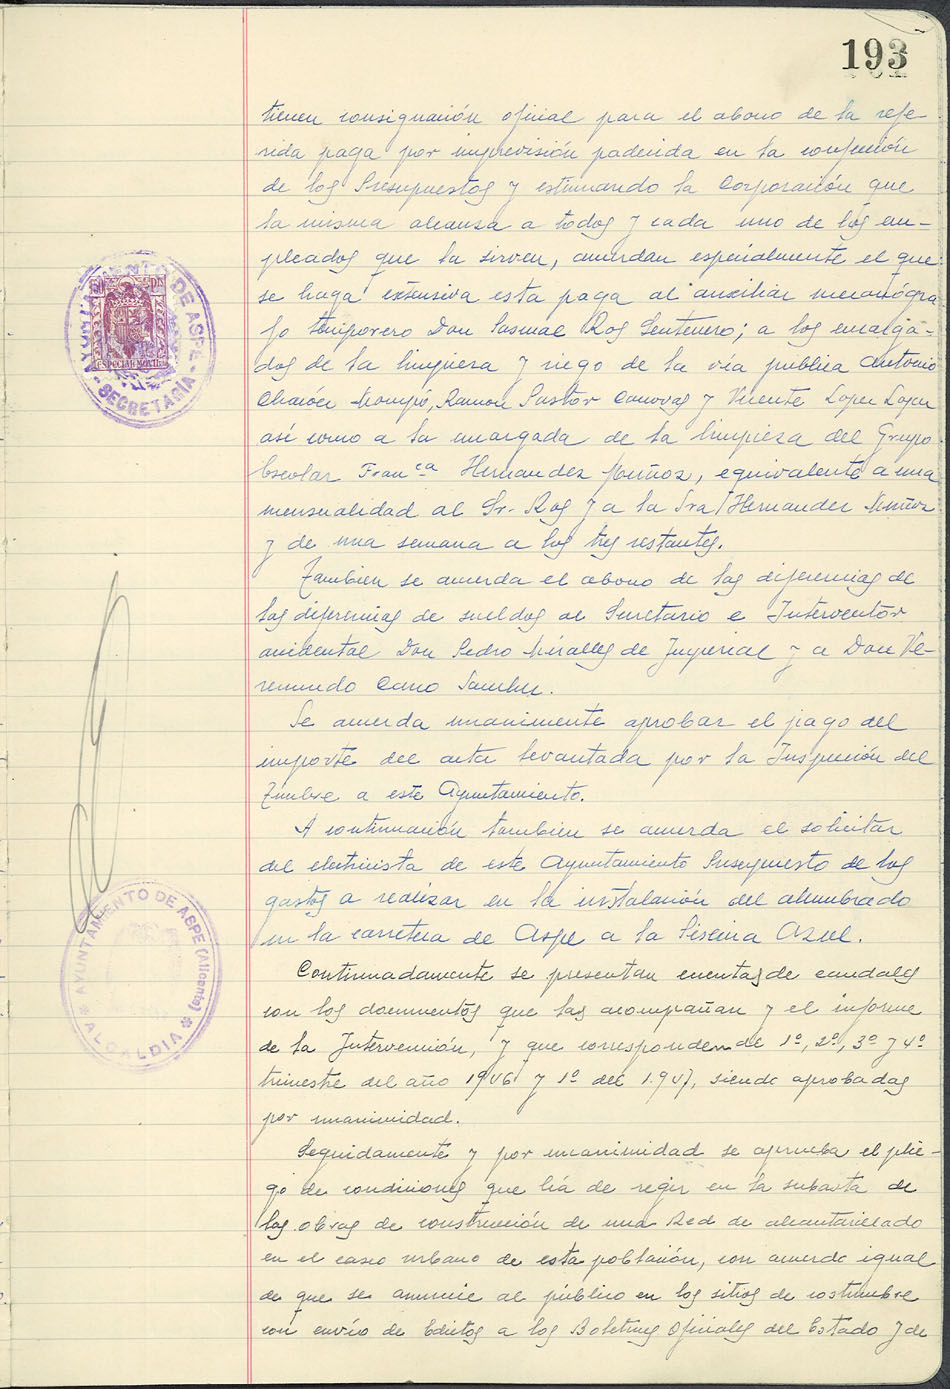 193
tienen consignación oficial para el abono de la refe-
rida paga por imprevisión padecida en la confección
de los Presupuestos y estimando la Corporación que
la misma alcanza a todos y cada uno de los em-
pleados que la sirven, acuerdan especialmente el que
se haga extensiva esta paga al auxiliar mecanógra-
fo temporero Don Pascual Ros Sentenero; a los encarga-
dos de la limpieza y riego de la vía publica Antonio
Mompó, Ramon Pastor Canovas y Vicente Lopez Lopez
asi como a la encargada de la limpieza del Grupo
Escolar Franca Hernandez Muñoz, equivalente a una
mensualidad al Sr. Ros y a la Sra/Hernandez Muñoz
y de una semana a los tres restantes.
Tambien se acuerda el abono de las diferencias de
las diferencias de sueldos al Secretario e Interventor
accidental Don Pedro Miralles de Imperial y a Don Ve-
remundo Cano Sanchez.
Se acuerda unanimente aprobar el pago del
importe del acta levantada por la Inspección del
Timbre a este Ayuntamiento.
A continuación tambien se acuerda el solicitar
del electricista de este Ayuntamiento Presupuesto de los
gastos a realizar en la instalación del alumbrado
en la carretera de Aspe a la Piscina Azul.
Continuadamente se presentan cuentas de caudales
con los documentos que las acompañan y el informe
de la Intervención, y que corresponden de 1º, 2º, 3º y 4º
trimestre del año 1946 y 1º del 1.947, siendo aprobadas
por unanimidad.
Seguidamente y por unanimidad se aprueba el plie-
go de condiciones que há de regir en la subasta de
las obras de construcción de una Red de alcantarillado
en el casco urbano de esta población, con acuerdo igual
de que se anuncie al público en los sitios de costumbre
con envío de Edictos a los Boletines Oficiales del Estado y de
AYUNTAMIENTO DE ASPE
- SECRETARÍA -
ESPECIAL MOVIL
AYUNTAMIENTO DE ASPE (Alicante)
* ALCALDIA *